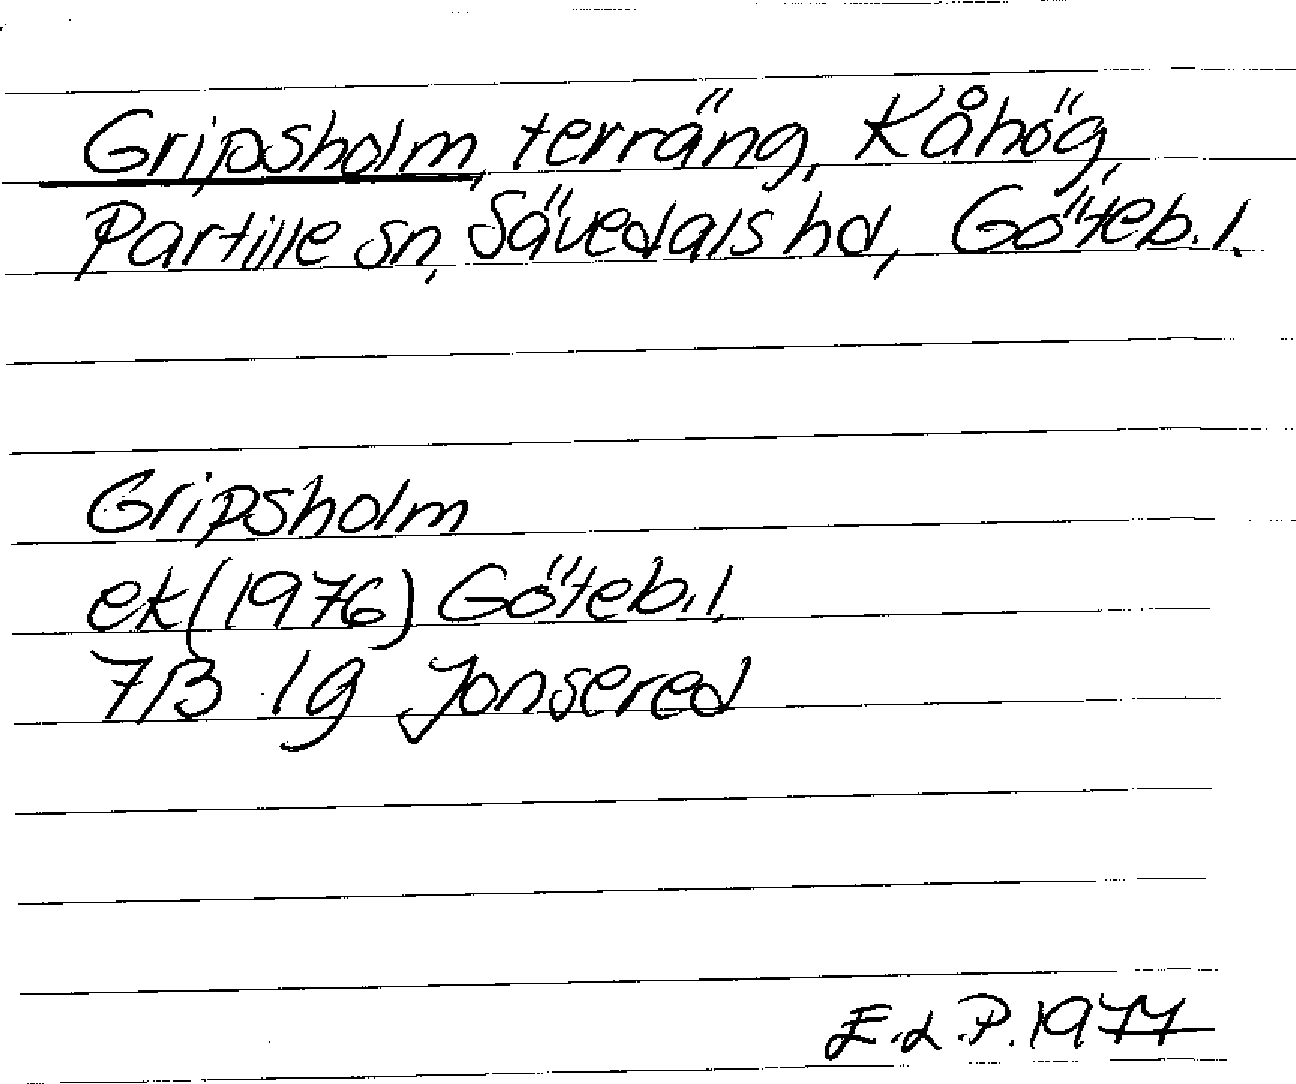 Gripsholm, terräng, Kåhög,
Partille sn, Sävedals hd, Göteb. l.
Gripsholm
ek (1976) Göteb. l.
7B 1g Jonsered
E.L.P. 1977